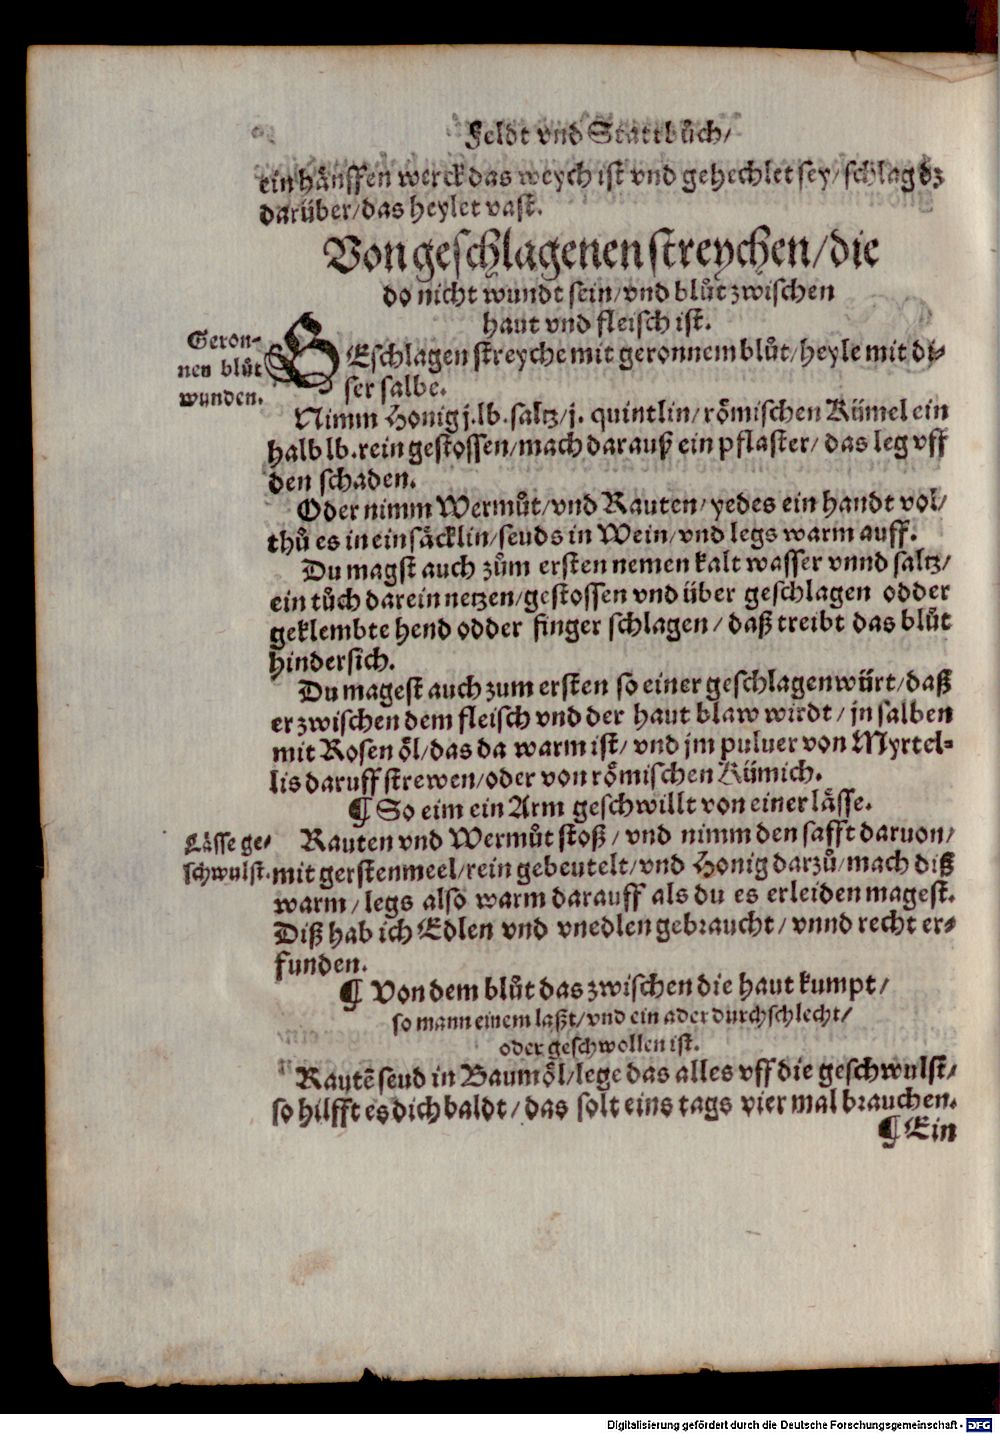 Feldt vnd Stattbuͦch/
ein haͤnffen werck das weych ist vnd gehechlet sey/ schlag dz
daruͤber/ das heylet vast.
Von geschlagenen streychen/ die
do nicht wundt sein/ vnd bluͦt zwischen
haut vnd fleisch ist.
Geron-
nen bluͦt
wunden.
GEschlagen streyche mit geronnem bluͦt/ heyle mit di-
ser salbe.
Nimm Honig j. lb. saltz/ j. quintlin/ roͤmischen Kuͤmel ein
halb lb. rein gestossen/ mach darauß ein pflaster/ das leg vff
den schaden.
Oder nimm Wermuͦt/ vnd Rauten/ yedes ein handt vol/
thuͦ es in ein saͤcklin/ seuds in Wein/ vnd legs warm auff.
Du magst auch zuͦm ersten nemen kalt wasser vnnd saltz/
ein tuͦch darein netzen/ gestossen vnd uͤber geschlagen odder
geklembte hend odder finger schlagen/ daß treibt das bluͦt
hindersich.
Du magest auch zum ersten so einer geschlagen wuͤrt/ daß
er zwischen dem fleisch vnd der haut blaw wirdt/ jn salben
mit Rosen oͤl/ das da warm ist/ vnd jm puluer von Myrtel-
lis daruff strewen/ oder von roͤmischen Kuͤmich.
¶ So eim ein Arm geschwillt von einer laͤsse.
Laͤsse ge-
schwulst.
Rauten vnd Wermuͦt stoß/ vnd nimm den safft daruon/
mit gerstenmeel/ rein gebeutelt/ vnd Honig darzuͦ/ mach diß
warm/ legs also warm darauff als du es erleiden magest.
Diß hab ich Edlen vnd vnedlen gebraucht/ vnnd recht er-
funden.
¶ Von dem bluͦt das zwischen die haut kumpt/
so mann einem laßt/ vnd ein ader durchschlecht/
oder geschwollen ist.
Rautẽ seud in Baumoͤl/ lege das alles vff die geschwulst/
so hilfft es dich baldt/ das solt eins tags vier mal brauchen.
¶ Ein
Digitalisierung gefördert durch die Deutsche Forschungsgemeinschaft - DFG